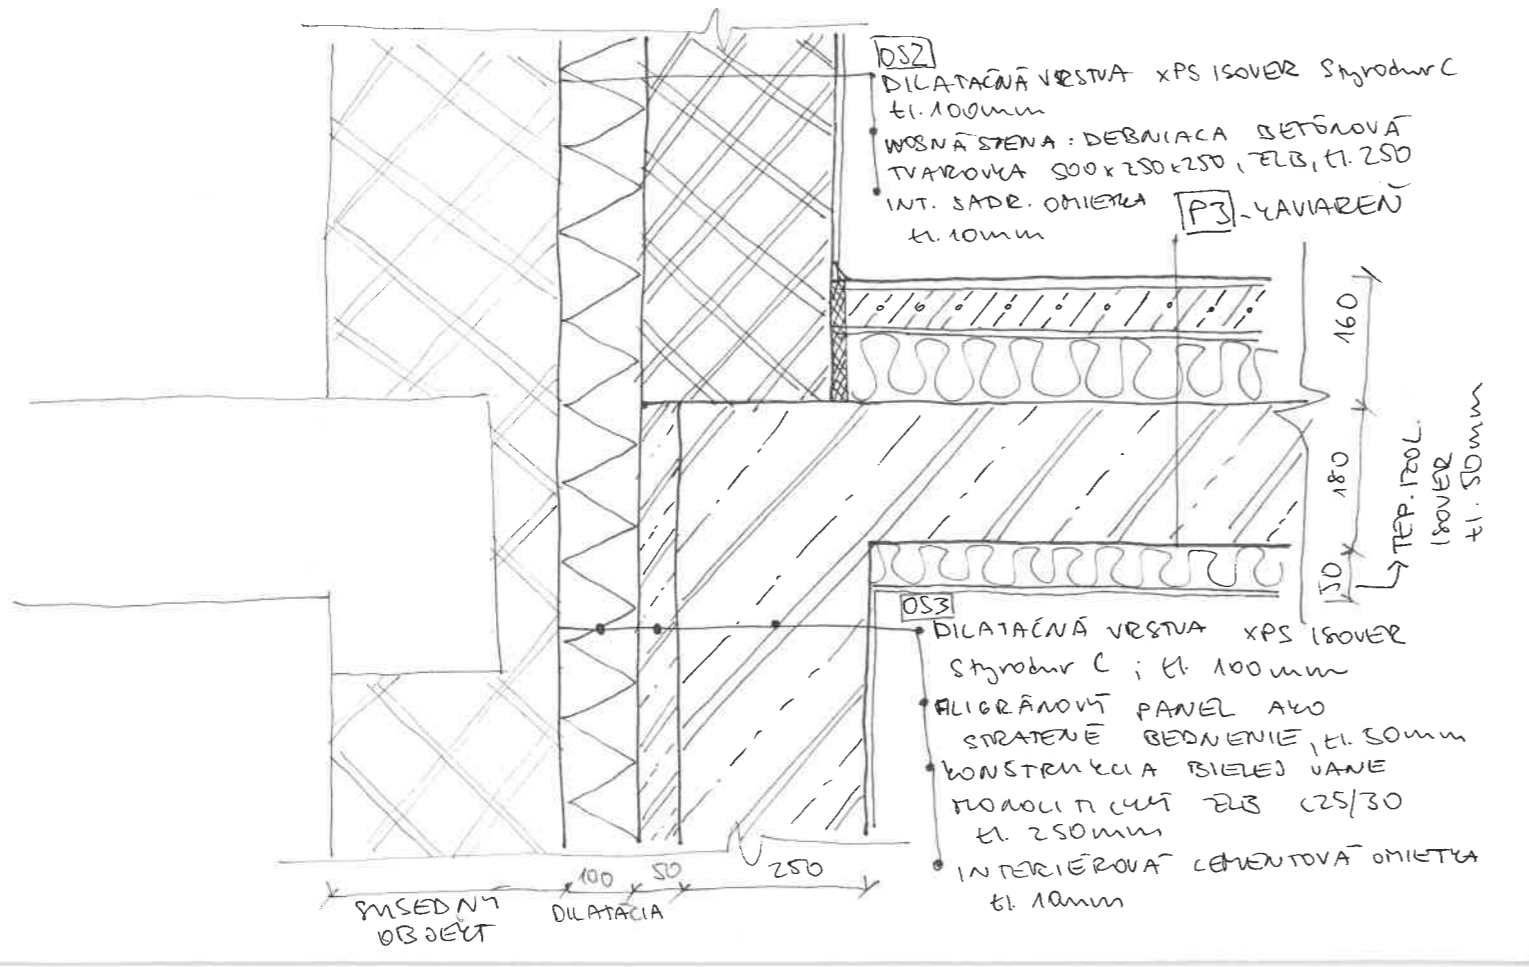 OS2
DILATAČNÁ VRSTVA XPS ISOVER Styrodur C
tl. 100mm
NOSNÁ STENA: DEBNIACA BETÓNOVÁ
TVAROVKA 500x250x250, ŽLB, tl. 250
INT. SADR. OMIETKA
tl. 10mm
P3 - KAVIAREŇ
160
180
50
TEP. IZOL.
ISOVER
tl. 50mm
OS3
DILATAČNÁ VRSTVA XPS ISOVER
Styrodur C ; tl. 100mm
FILIGRÁNOVÝ PANEL AKO
STRATENÉ BEDNENIE, tl. 50mm
KONŠTRUKCIA BIELEJ VANE
MONOLITICKÝ ŽLB C25/30
tl. 250mm
INTERIÉROVÁ CEMENTOVÁ OMIETKA
tl. 10mm
100 50 250
SUSEDNÝ
OBJEKT
DILATÁCIA